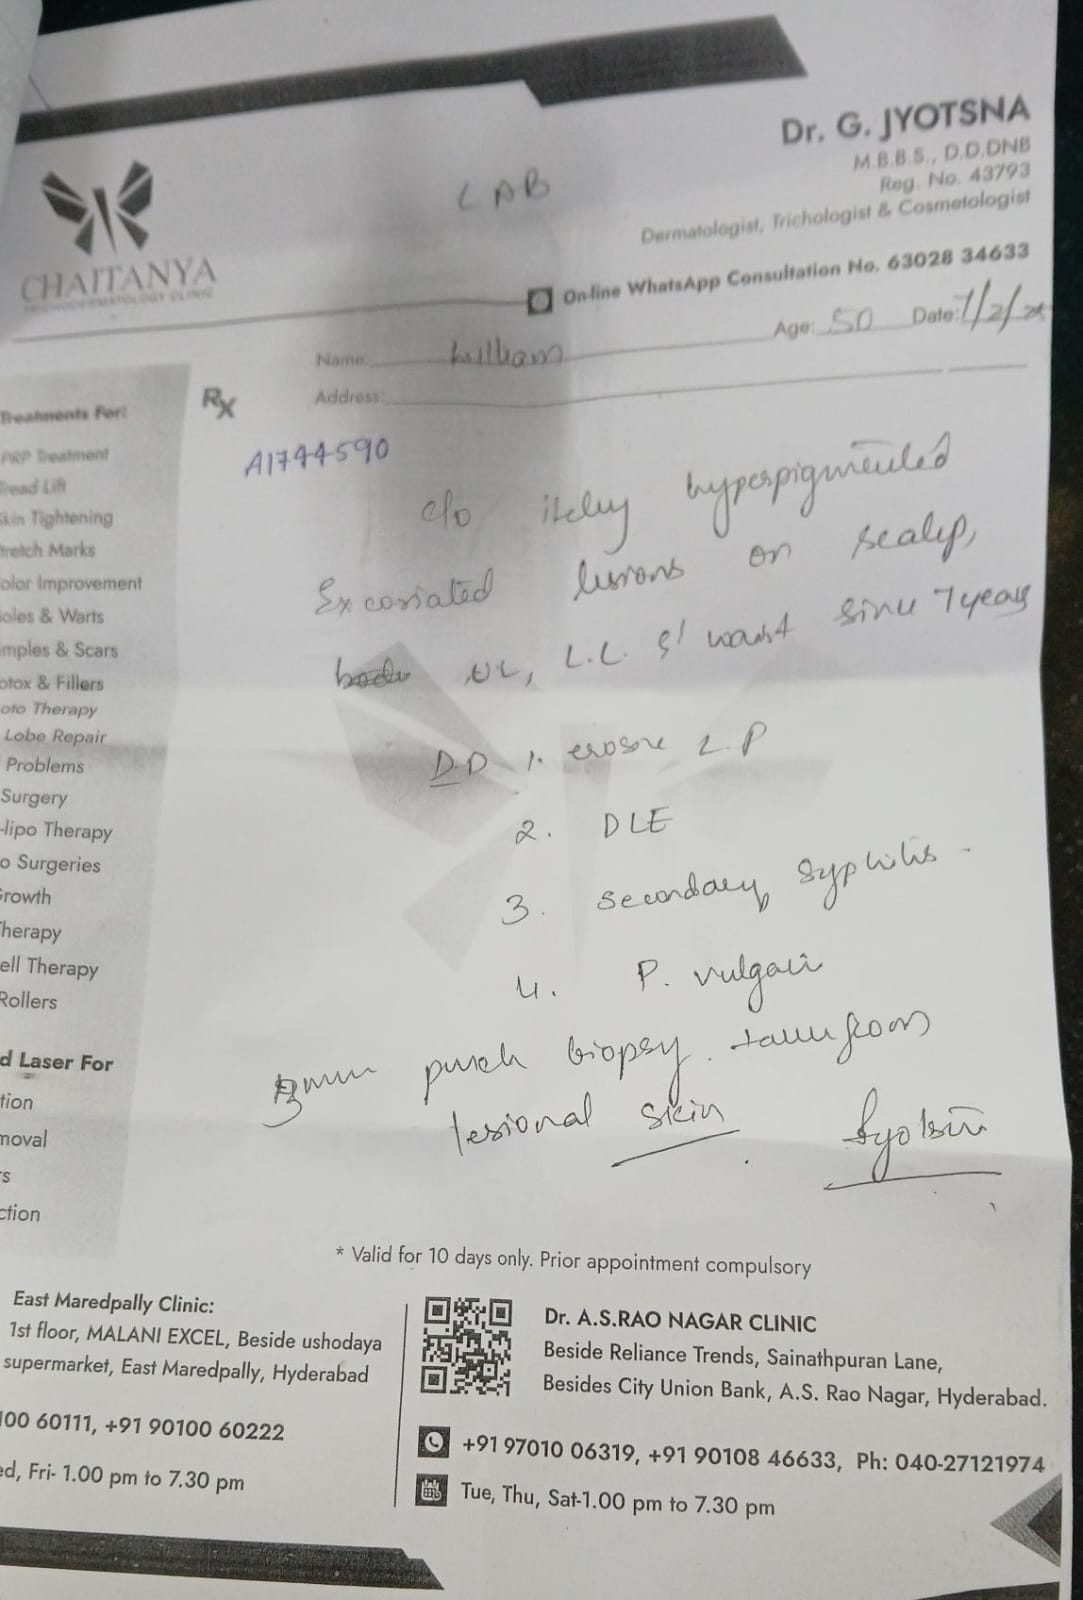 LAB
Dr. G. JYOTSNA
M.B.B.S., D.D.DNB
Reg. No. 43793
Dermatologist, Trichologist & Cosmetologist
CHAITANYA
TRICHODERMATOLOGY CLINIC
On-line WhatsApp Consultation No. 63028 34633
Name: William Age: 50 Date: 7/2/25
Address:
Rx
A1744590
c/o itchy hyperpigmented
Excoriated lesions on scalp,
UL, L.L. & waist since 7 years
DD 1. erosive L.P
2. DLE
3. secondary syphilis -
4. P. vulgaris
3mm punch biopsy taken from
lesional skin
Jyotsna
Treatments For:
PRP Treatment
Tread Lift
Skin Tightening
tretch Marks
olor Improvement
oles & Warts
imples & Scars
otox & Fillers
oto Therapy
Lobe Repair
Problems
Surgery
-lipo Therapy
o Surgeries
Growth
herapy
ell Therapy
Rollers
d Laser For
tion
moval
s
ction
* Valid for 10 days only. Prior appointment compulsory
East Maredpally Clinic:
1st floor, MALANI EXCEL, Beside ushodaya
supermarket, East Maredpally, Hyderabad
100 60111, +91 90100 60222
ed, Fri- 1.00 pm to 7.30 pm
Dr. A.S.RAO NAGAR CLINIC
Beside Reliance Trends, Sainathpuran Lane,
Besides City Union Bank, A.S. Rao Nagar, Hyderabad.
+91 97010 06319, +91 90108 46633, Ph: 040-27121974
Tue, Thu, Sat-1.00 pm to 7.30 pm